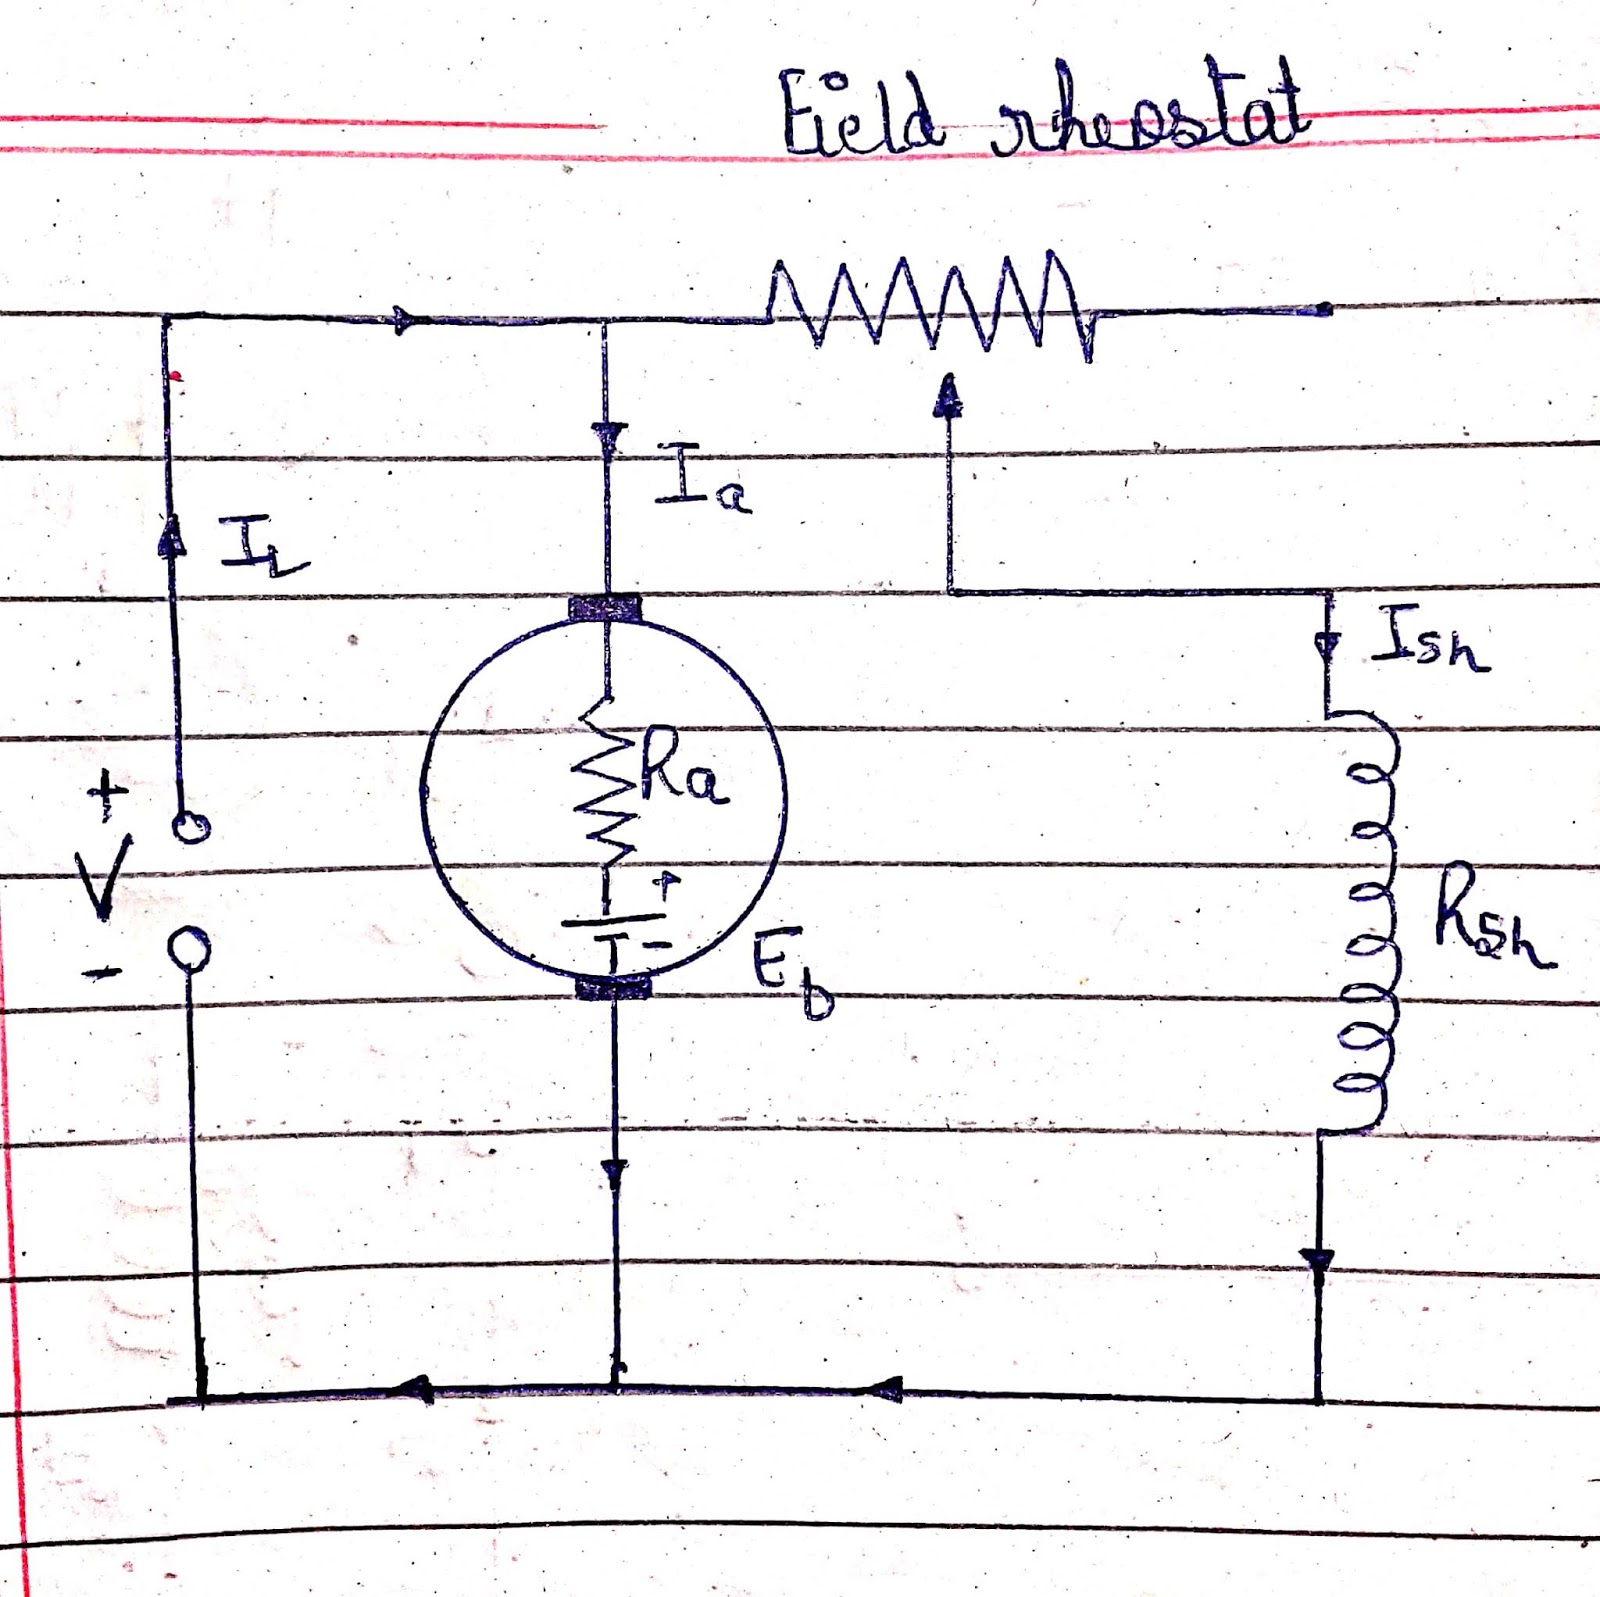 Field rheostat
Ia
IL
Ish
+
Ra
V
+
-
Eb
Rsh
-